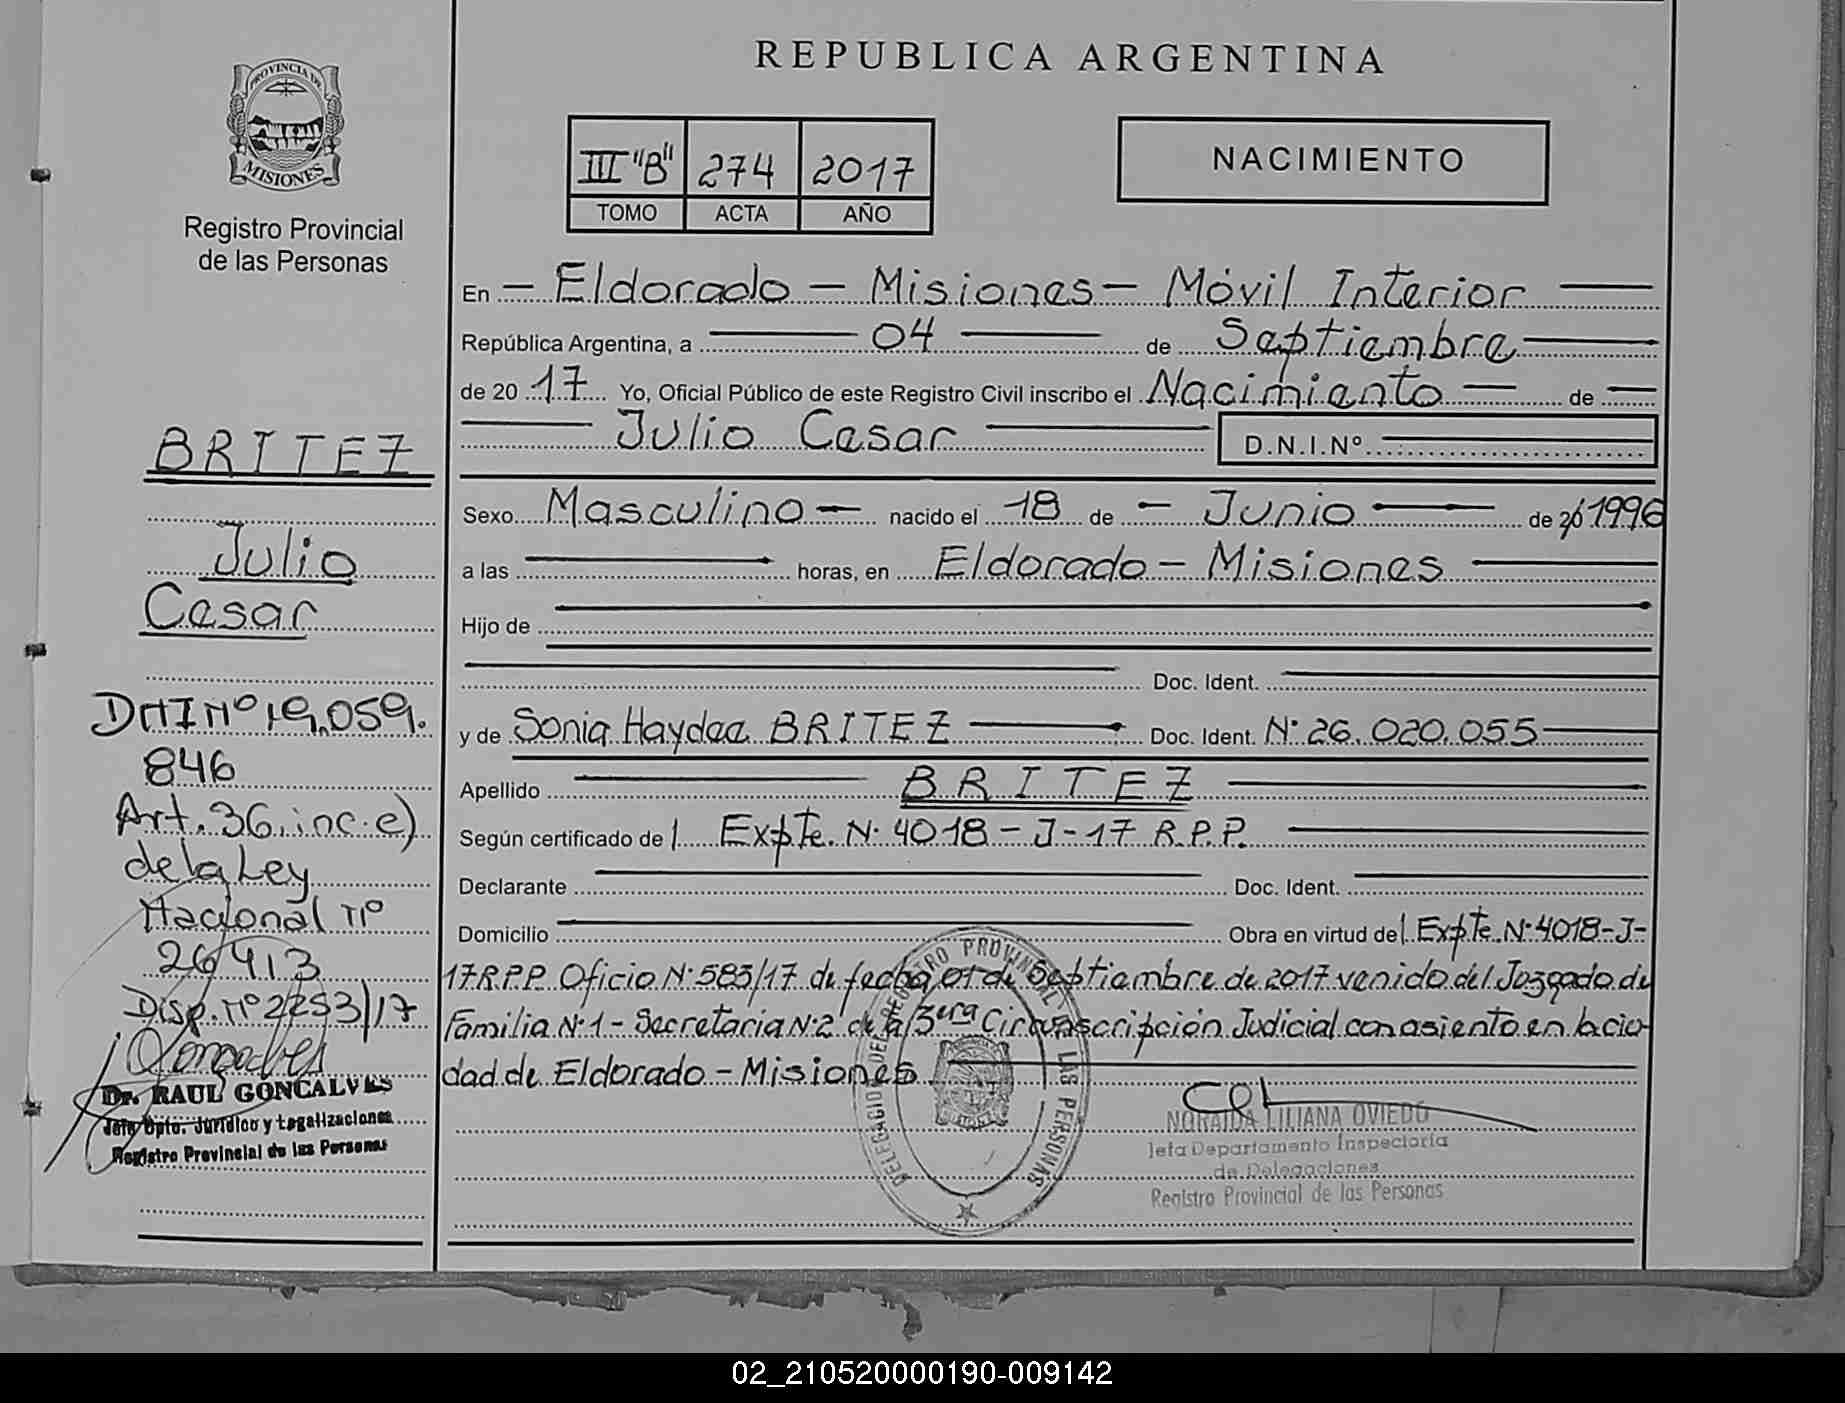 REPUBLICA ARGENTINA
PROVINCIA DE
MISIONES
Registro Provincial
de las Personas
III "B" 274 2017
TOMO ACTA AÑO
NACIMIENTO
En - Eldorado - Misiones - Móvil Interior
República Argentina, a 04 de Septiembre
de 20 17 Yo, Oficial Público de este Registro Civil inscribo el Nacimiento de
Julio Cesar D.N.I.Nº
Sexo Masculino - nacido el 18 de - Junio de 20 1996
a las horas, en Eldorado - Misiones
Hijo de
Doc. Ident.
y de Sonia Haydee BRITEZ Doc. Ident. Nº 26.020.055
Apellido BRITEZ
Según certificado de l Expte. Nº 4018 - J - 17 R.P.P.
Declarante Doc. Ident.
Domicilio Obra en virtud del Expte. Nº 4018 - J -
17 R.P.P. Oficio Nº 583/17 de fecha 01 de Septiembre de 2017 venido del Juzgado de
Familia Nº 1 - Secretaria Nº 2 de la 3era Circunscripción Judicial con asiento en la ciu-
dad de Eldorado - Misiones
BRITEZ
Julio
Cesar
DNI Nº 19.059.
846
Art. 36. inc. e)
de la Ley
Nacional Nº
26413
Disp. Nº 2253/17
Dr. RAUL GONCALVES
Jefe Dpto. Jurídico y Legalizaciones
Registro Provincial de las Personas
DELEGACION DEL REGISTRO PROVINCIAL DE LAS PERSONAS
NORAIDA LILIANA OVIEDO
Jefa Departamento Inspectoría
de Delegaciones
Registro Provincial de las Personas
02_210520000190-009142